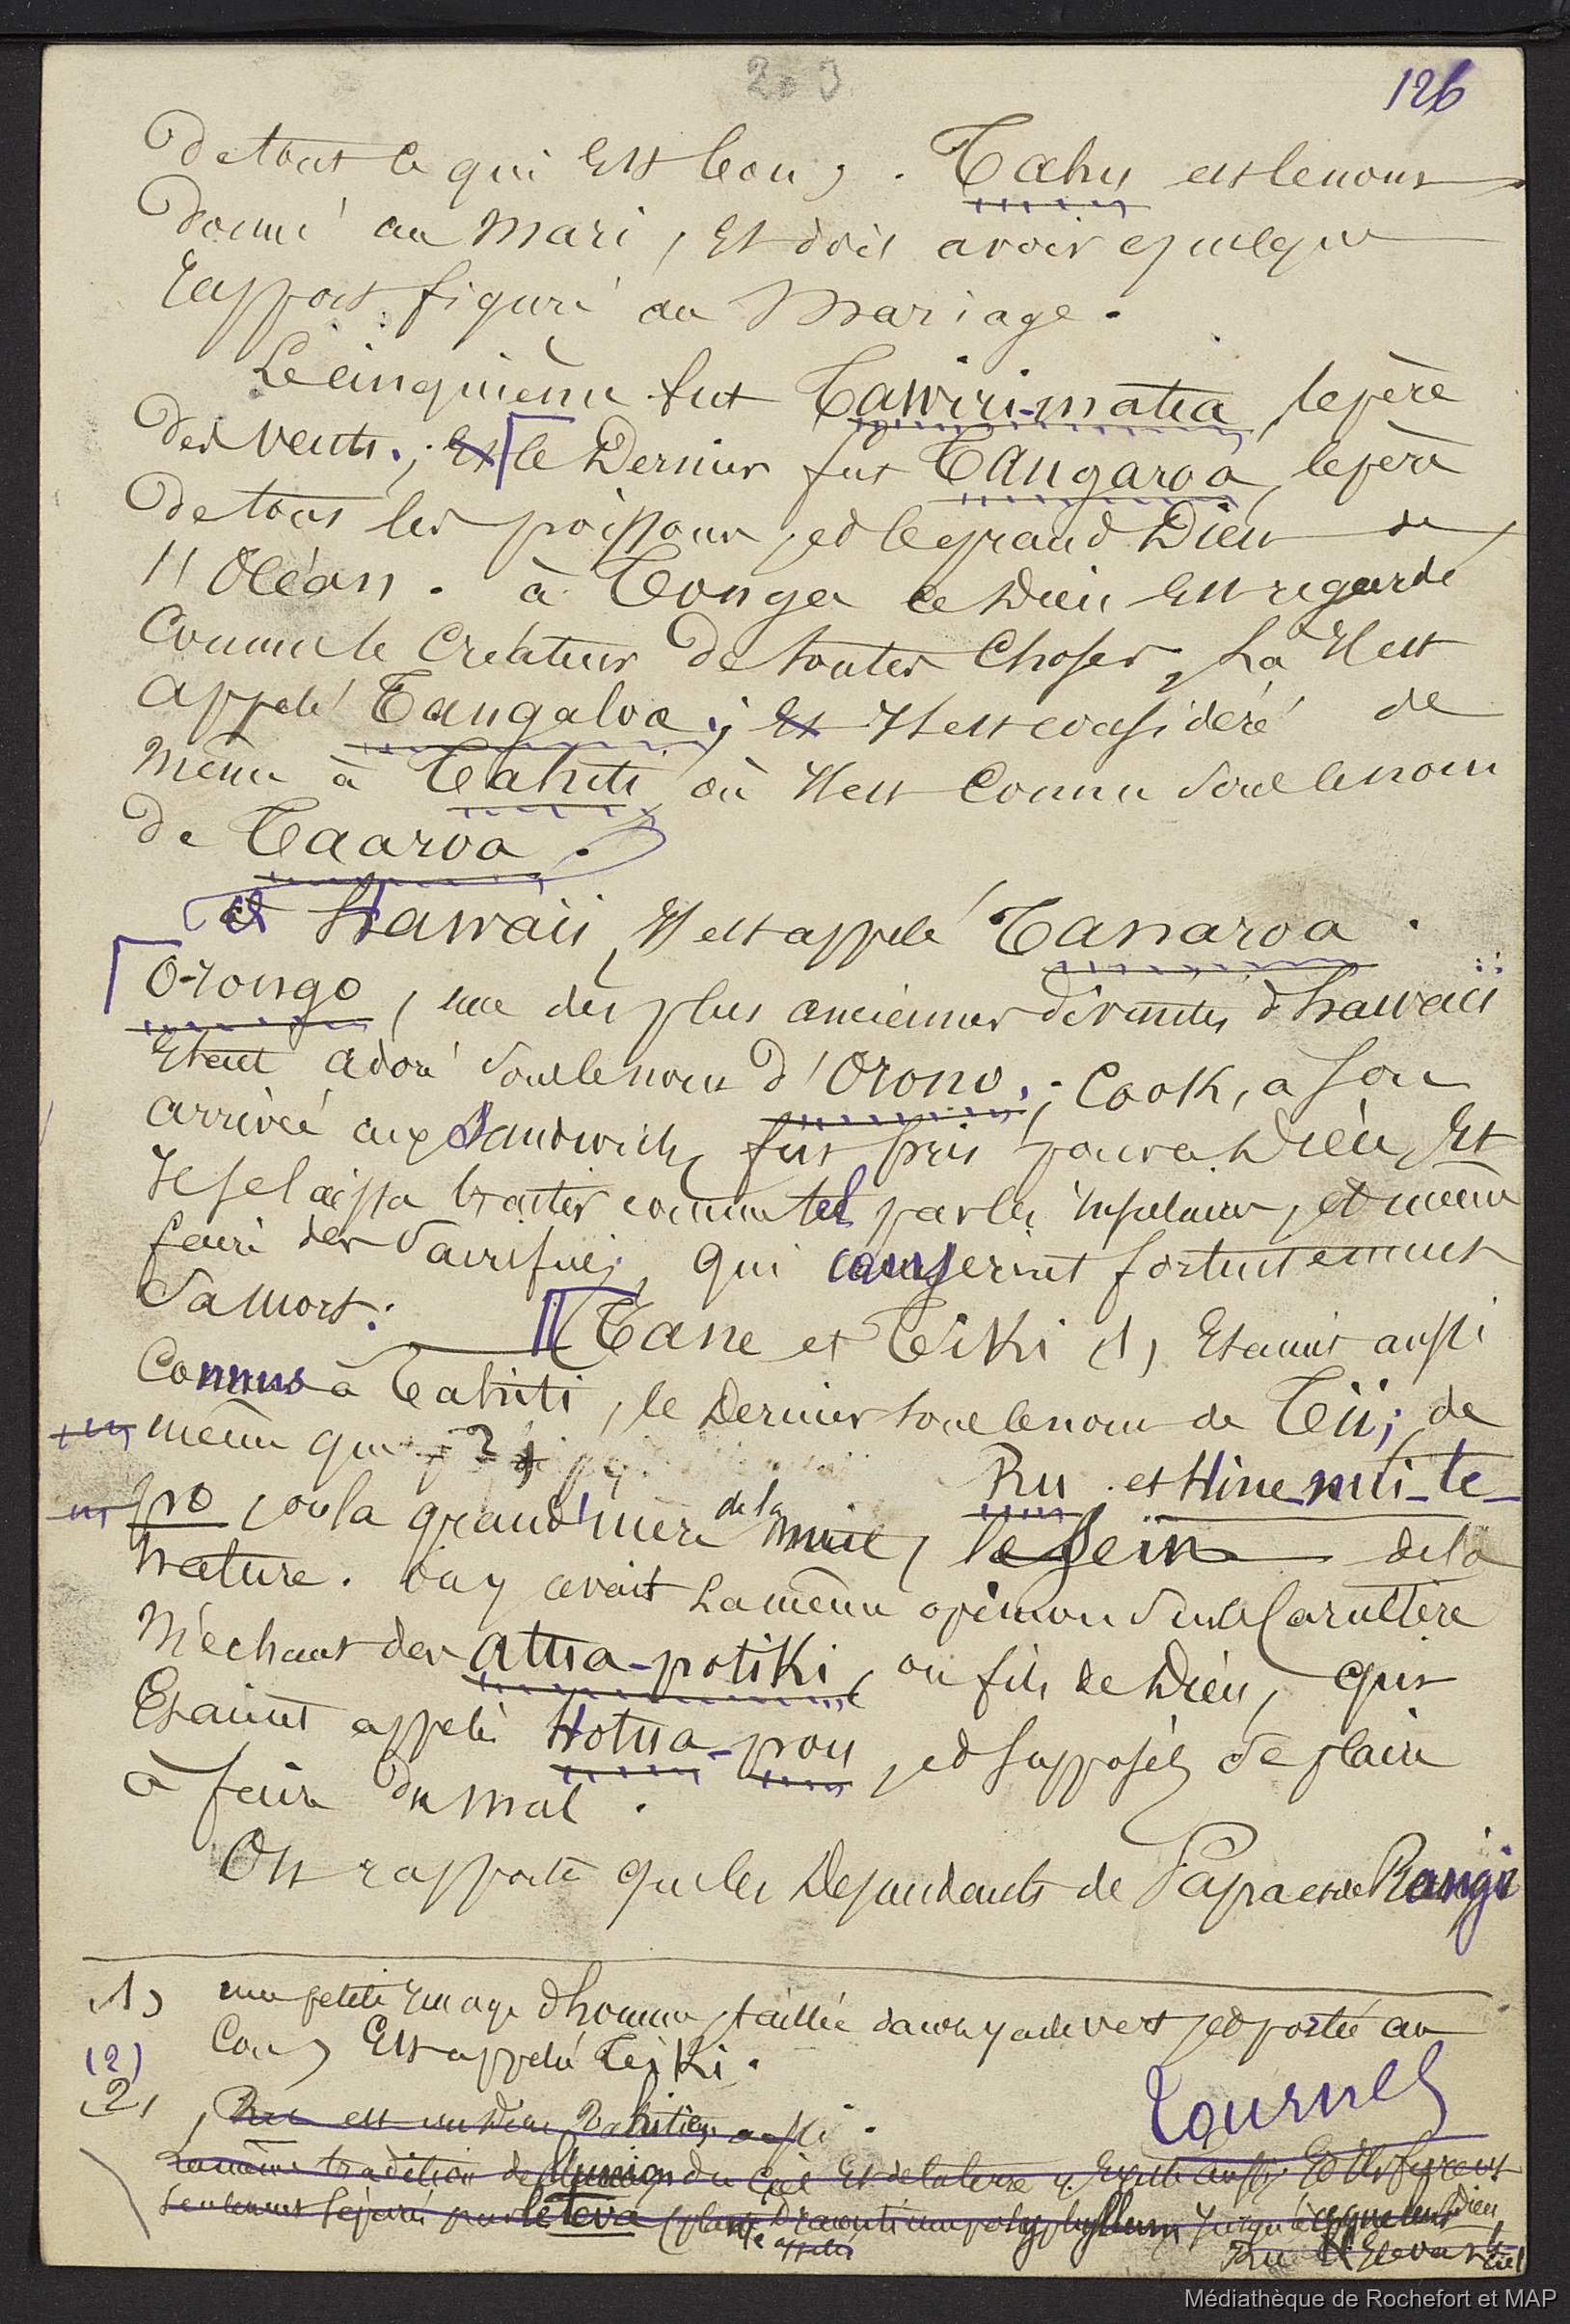 203
126
de tout ce qui Est bon, . Tahu est le nom
donné au Mari, Et doit avoir quelque
rapport figuré au Mariage.
Le cinquième fut Tawiri-matea, le père
des vents. ; Et le Dernier fut Tangaroa, le père
de tous les poissons, et le grand Dieu de
l'Océan. à Tonga ce Dieu Est regardé
Comme le Créateur De toutes Choses, Là Il est
appelé Tangaloa ; Et Il est considéré de
même à Tahiti, où Il est Connu sous le nom
de Taaroa.
à Hawaii, Il est appelé Tanaroa.
O-rongo, une des plus anciennes divinités d'hawaii
Etait adoré sous le nom d'Orono. ; Cook, a son
arrivée aux Sandwich, fut pris pour ce Dieu, Et
Il se laissa traiter comme tel par les insulaires, et même
faire des Sacrifices, qui causerent fortuitement
Sa mort.
Tane et Tiki (1, Etaient aussi
Connus à Tahiti, le Dernier sous le nom de Tii ; de
même que ?
Ru et Hine-nui-te-
po, ou la grand'mère de la nuit, le sein de la
nature. on y avait La même opinion sur le Caractère
Méchant des atua-potiki, ou fils de Dieu, qui
Etaient appelés Hotua-pou, et supposés se plaire
à faire du mal.
On rapporte que les Dependants de Papa et de Rangi
(1) une petite Image d'homme, taillée dans un jade vert, et portée au
Cou, Est appelé Teiki.
(2)
2, Ru est un Dieu Tahitien aussi.
Tournez
La même tradition de l'union du Ciel Et de la terre y Existe aussi, Et Ils furent
seulement séparés par le Teva (plante Dracontium polyphyllum, Jusqu'à ce que leur Dieu,
appelé
Ru Eleva le Ciel
Médiathèque de Rochefort et MAP